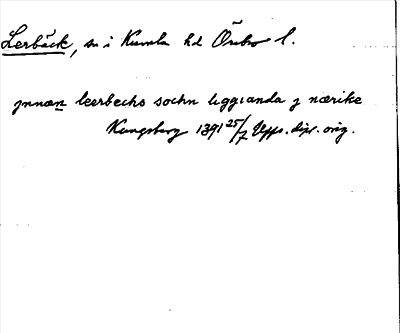 Lerbäck, sn i Kumla hd Örebro l.
jnnan leerbechs sochn liggianda j nærike
Kungsberg 1391 25/7 Upps. dipl. orig.